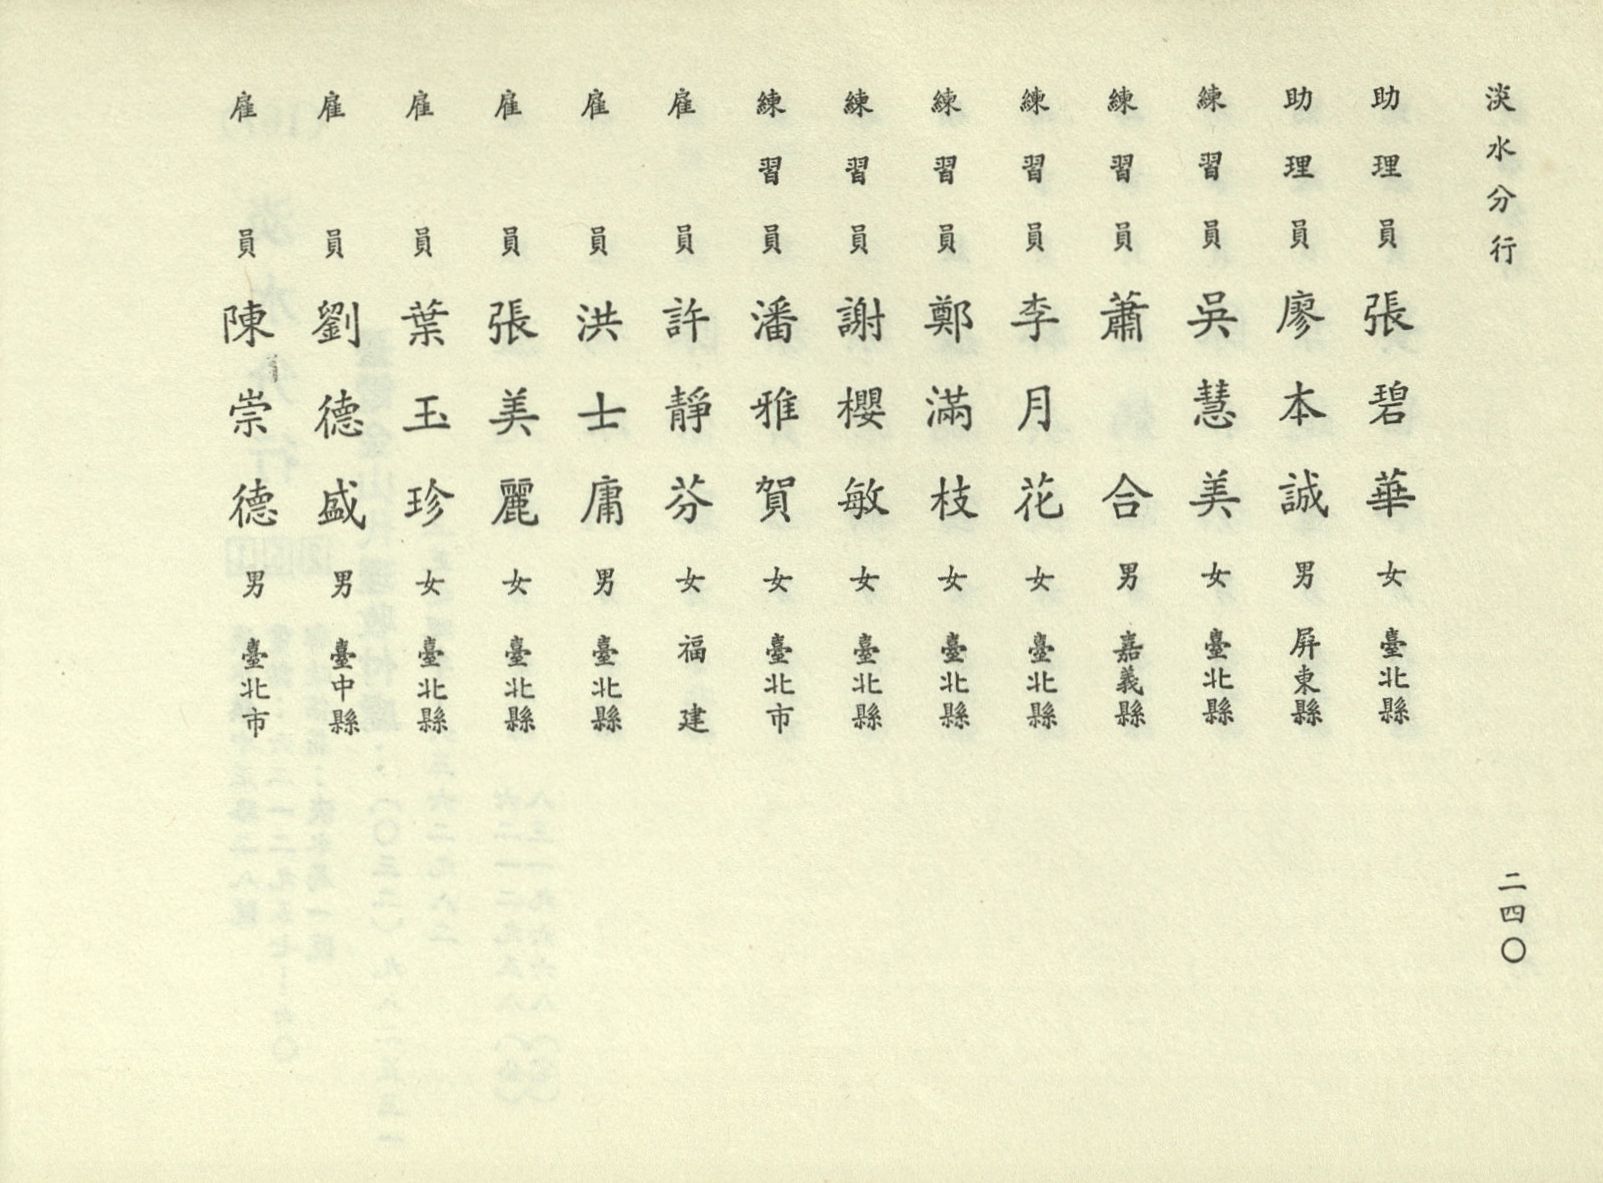 淡水分行
助理員 張碧華 女 臺北縣
助理員 廖本誠 男 屏東縣
練習員 吳慧美 女 臺北縣
練習員 蕭合 男 嘉義縣
練習員 李月花 女 臺北縣
練習員 鄭滿枝 女 臺北縣
練習員 謝櫻敏 女 臺北縣
練習員 潘雅賀 女 臺北市
雇員 許靜芬 女 福建
雇員 洪士庸 男 臺北縣
雇員 張美麗 女 臺北縣
雇員 葉玉珍 女 臺北縣
雇員 劉德盛 男 臺中縣
雇員 陳崇德 男 臺北市
二四〇